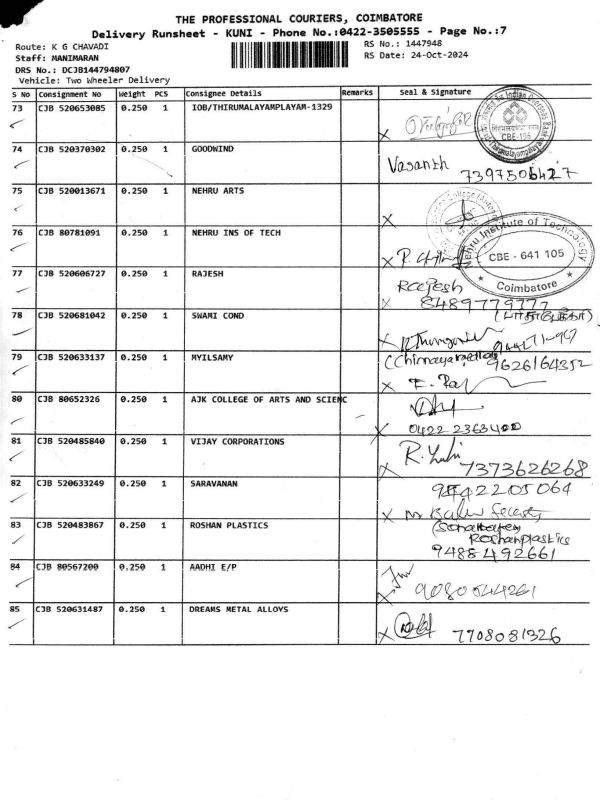 THE PROFESSIONAL COURIERS, COIMBATORE
Delivery Runsheet - KUNI - Phone No.:0422-3505555 - Page No.:7
Route: K G CHAVADI
RS No.: 1447948
Staff: MANIMARAN
RS Date: 24-Oct-2024
DRS No.: DCJB144794807
Vehicle: Two Wheeler Delivery
S No Consignment No Weight PCS Consignee Details Remarks Seal & Signature
73 CJB 520653085 0.250 1 IOB/THIRUMALAYAMPLAYAM-1329
CBE-105
74 CJB 520370302 0.250 1 GOODWIND
Vasanth 7397506427
75 CJB 520013671 0.250 1 NEHRU ARTS X
76 CJB 80781091 0.250 1 NEHRU INS OF TECH X
Nehru Institute of Technology
CBE - 641 105
Coimbatore
77 CJB 520606727 0.250 1 RAJESH
8489779777
78 CJB 520681042 0.250 1 SWAMI COND
79 CJB 520633137 0.250 1 MYILSAMY
9626164352
80 CJB 80652326 0.250 1 AJK COLLEGE OF ARTS AND SCIENC
0422 2363400
81 CJB 520485840 0.250 1 VIJAY CORPORATIONS
7373626268
82 CJB 520633249 0.250 1 SARAVANAN
9842205064
83 CJB 520483867 0.250 1 ROSHAN PLASTICS
Roshanplastics
9488492661
84 CJB 80567200 0.250 1 AADHI E/P
9080544261
85 CJB 520631487 0.250 1 DREAMS METAL ALLOYS
7708081326